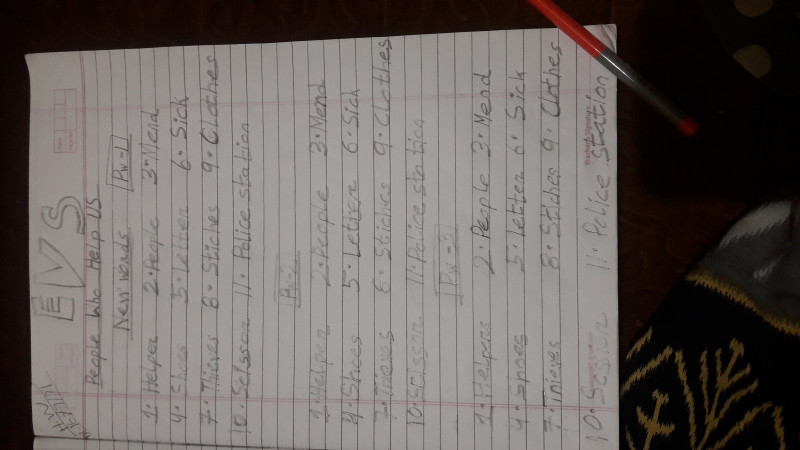 EVS
People Who Help US
New words
PW-1
1. Helper 2. People 3. Mend
4. Shoes 5. Letter 6. Sick
7. Thieves 8. Stiches 9. Clothes
10. Scisson 11. Police station
PW-2
1. Helper 2. People 3. Mend
4. Shoes 5. Letter 6. Sick
7. Thieves 8. Stiches 9. Clothes
10. Scisson 11. Police station
PW-3
1. Helpers 2. People 3. Mend
4. Shoes 5. Letter 6. Sick
7. Thieves 8. Stiches 9. Clothes
10. 11. Police station